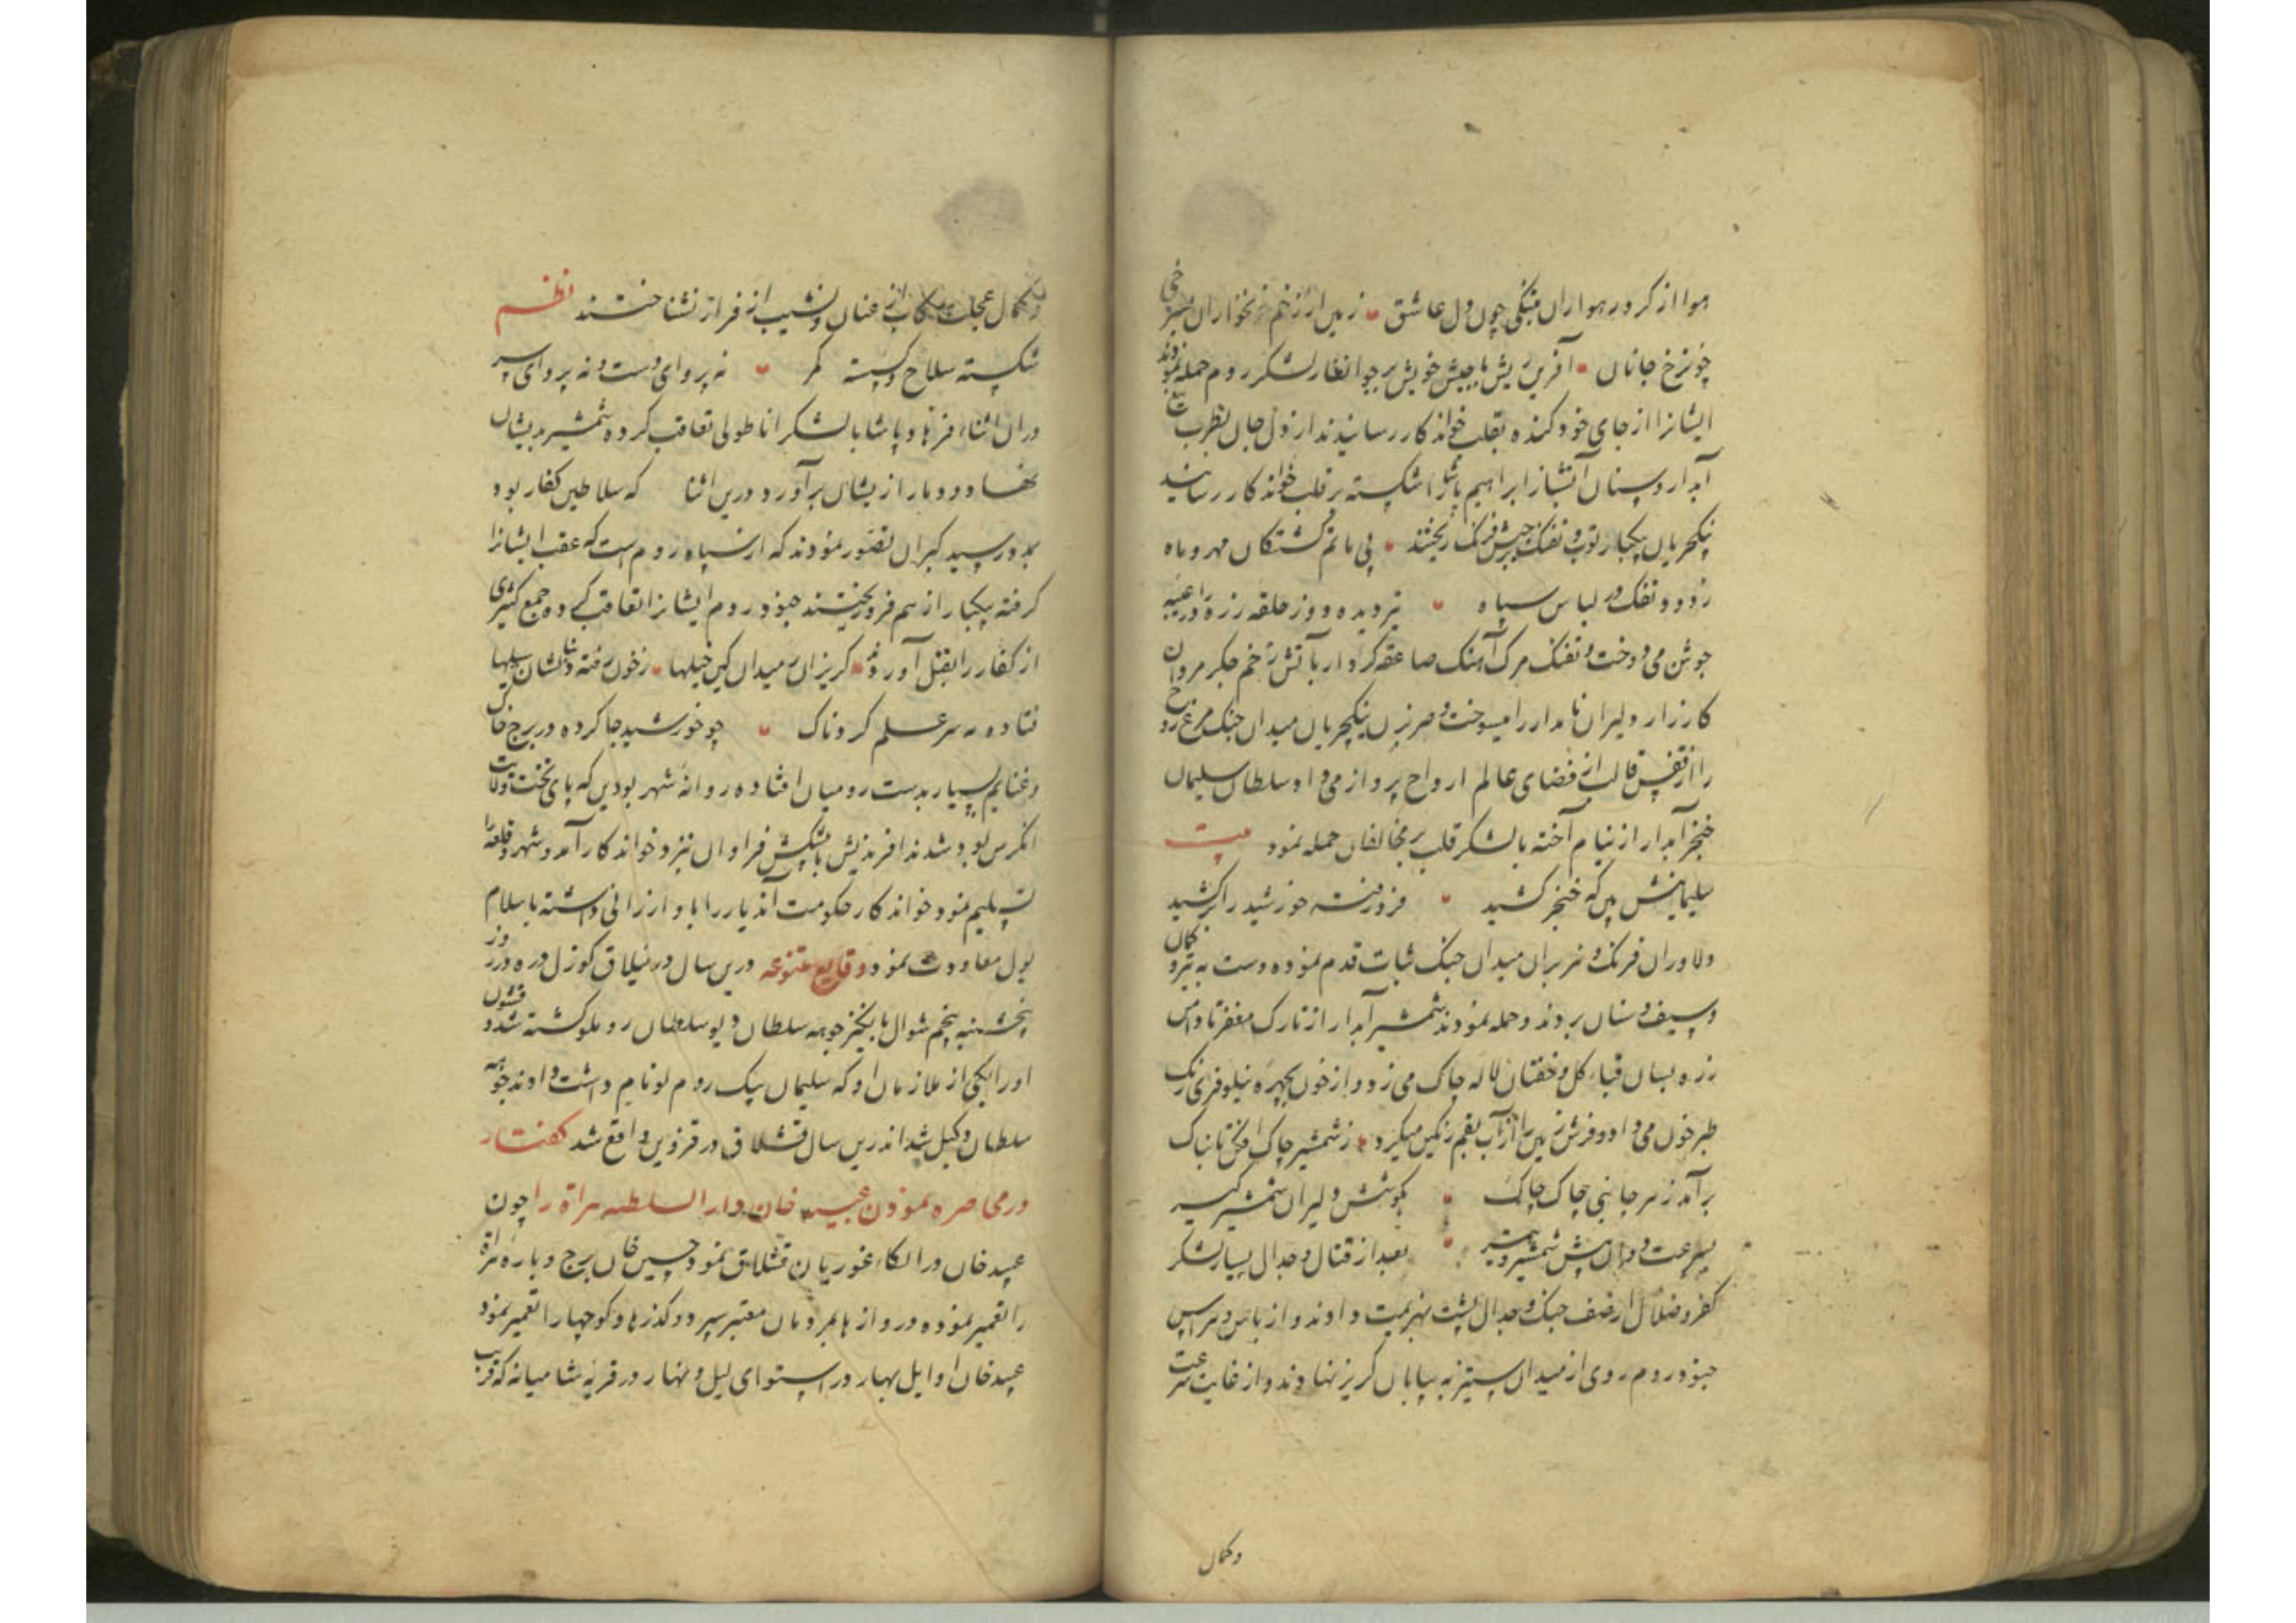 هوا از کرد رهواران بتنکی چون دل عاشق زمین از زخم خنجرداران بسرخی
چون رخ جانان آفرین‌ریش با جیش خویش برجوانغار لشکر روم حمله نمودند
ایشانرا از جای خود کنده بقلب خواندکار رسانیدند از دل و جان بضرب تیغ
آبدار و سنان آتشبار ابراهیم پاشا را شکسته بر قلب خواندکار رسانید
ینکچریان یکبار توپ و تفنک بر جیش فرنک ریختند پی ماتم کشتکان مهر و ماه
ز دود تفنک در لباس سیاه تیر دیده دوز حلقه زره را عیبه
جوشن می دوخت و تفنک مرک آهنک صاعقه کردار بآتش زخم جکر مردان
کارزار و دلیران نامدار را میسوخت و صرصر ینکچریان میدان جنک مرغ روح
را از قفس قالب از فضای عالم ارواح پرواز می داد سلطان سلیمان
خنجر آبدار از نیام آخته با لشکر قلب بر مخالفان حمله نمود بیت
سلیمانیش بین که خنجر کشید فرو رفت خورشید را برکشید
دلاوران فرنک و هزبران میدان جنک ثبات قدم نموده دست به تیر و کمان
و سیف و سنان بردند و حمله نمودند شمشیر آبدار از تارک مغفر تا دامن
زره بسان قباء کل و خفتان لاله چاک می زد و از خون بچهره نیلوفری رنک
طبرخون می داد و فرش زمین را از آب بقم رنکین میکرد ز شمشیر چاک افکن تابناک
برآمد ز هر جانبی چاک چاک بکوشش دلیران شمشیر کیر
بسرعت دوان پیش شمشیر و تیر بعد از قتال و جدال بسیار لشکر
کفر و ضلال از صف جنک و جدال پشت بهزیمت دادند و از باس و هراس
جنود روم روی از میدان ستیز به بیابان کریز نهادند و از غایت سرعت
وکمال
وکمال عجلت رکاب از عنان و نشیب از فراز نشناختند نظم
شکسته سلاح و کسسته کمر نه پروای دست و نه پروای سر
در آن اثناء فرهاد پاشا با لشکر اناطولی تعاقب کرده شمشیر در ایشان
نهاد و دمار از ایشان برآورد درین اثنا که سلاطین کفار بود
بدو رسید کبران تصور نمودند که از سپاه روم است که عقب ایشانرا
کرفته یکبار از هم فرو ریختند جنود روم ایشانرا تعاقب کرده جمع کثیری
از کفار را بقتل آوردند کریزان ز میدان کین خیلها ز خون رفته دنبالشان سیلها
فتاده به سر علم کردناک چو خورشید جا کرده در برج خاک
و غنایم بسیار بدست رومیان افتاده روانه شهر بودین که پای تخت ولایت
انکرس بود شدند افرندیش با پیشکش فراوان نزد خواندکار آمد و شهر و قلعه را
تسلیم نمود خواندکار حکومت آن دیار را باو ارزانی داشته باسلام
بول معاودت نمود وقایع متنوعه درین سال در ییلاق کوزل دره در روز
پنجشنبه پنجم شوال بایکنر جوهه سلطان دیو سلطان روملو کشته شد و قشون
او را بیکی از ملازمان او که سلیمان بیک روملو نام داشت دادند و جوهه
سلطان وکیل شد اندرین سال قشلاق در قزوین واقع شد کفتار
در محاصره نمودن عبید خان دار السلطنه هراة را چون
عبید خان در الکاء غوریان قشلاق نمود حسین خان برج و باره هراة
را تعمیر نموده دروازها بمردمان معتبر سپرد و کذرها و کوچها را تعمیر نمود
عبید خان اوایل بهار در استوای لیل و نهار در قریه شامیانه که قریب